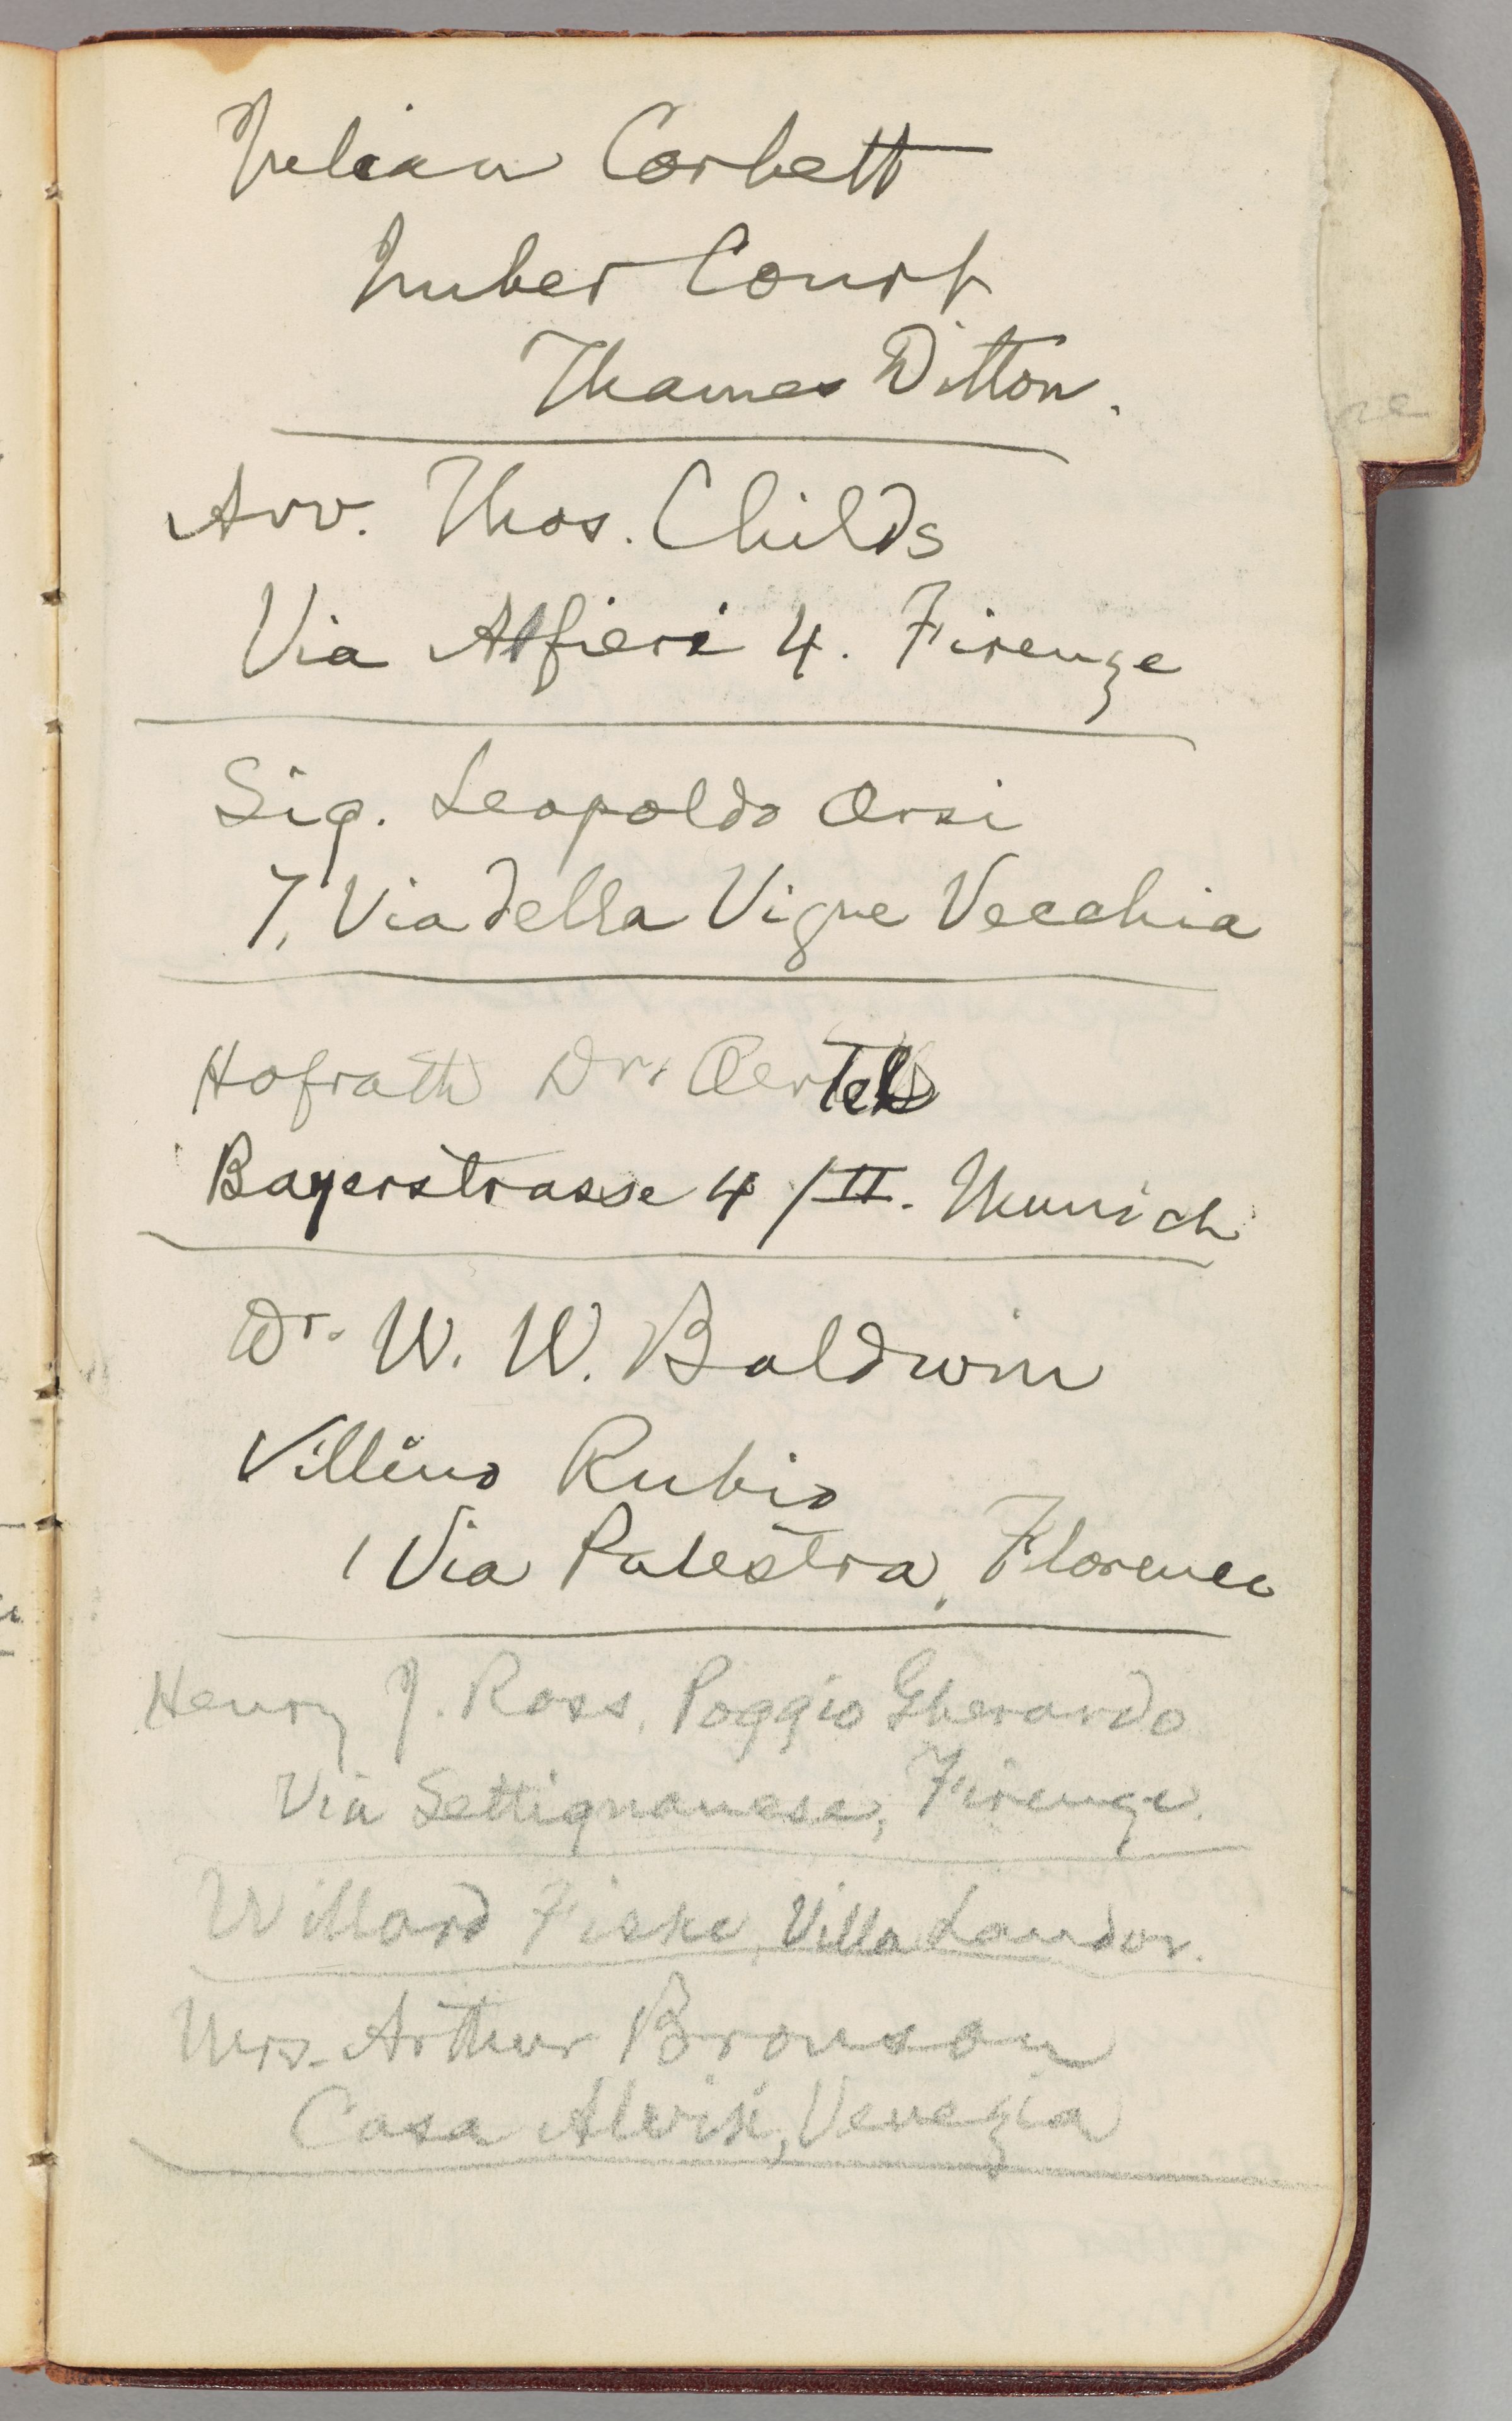 Julian Corbett
Imber Court
Thames Ditton.
Avv. Thos. Childs
Via Alfieri 4. Firenze
Sig. Leopoldo Orsi
7, Via della Vigne Vecchia
Hofrath Dr. Oertel
Bayerstrasse 4/II. Munich
Dr. W. W. Baldwin
Villino Rubio
1 Via Palestra, Florence
Henry J. Ross, Poggio Gherardo
Via Settignanese, Firenze.
Willard Fiske, Villa Landor.
Mrs. Arthur Bronson
Casa Alvisi, Venezia